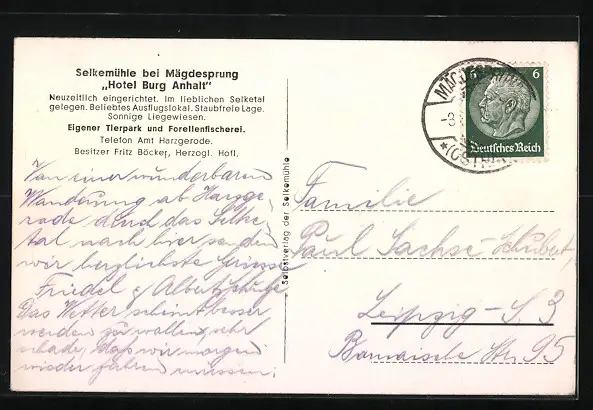 Selkemühle bei Mägdesprung
„Hotel Burg Anhalt"
Neuzeitlich eingerichtet. Im lieblichen Selketal
gelegen. Beliebtes Ausflugslokal. Staubfreie Lage.
Sonnige Liegewiesen.
Eigener Tierpark und Forellenfischerei.
Telefon Amt Harzgerode.
Besitzer Fritz Böcker, Herzogl. Hofl.
Von einer wunderbaren
Wanderung ab Harzge-
rode durch das Selke-
tal nach hier senden
wir herzlichste Grüsse
Friedel &
Das Wetter scheint besser
werden zu wollen, sehr
schade, daß wir morgen
wieder fahren müssen.
Selbstverlag der Selkemühle
6 6
Deutsches Reich
Familie
Paul Sachse-Schubert,
Leipzig-S 3
Str. 95